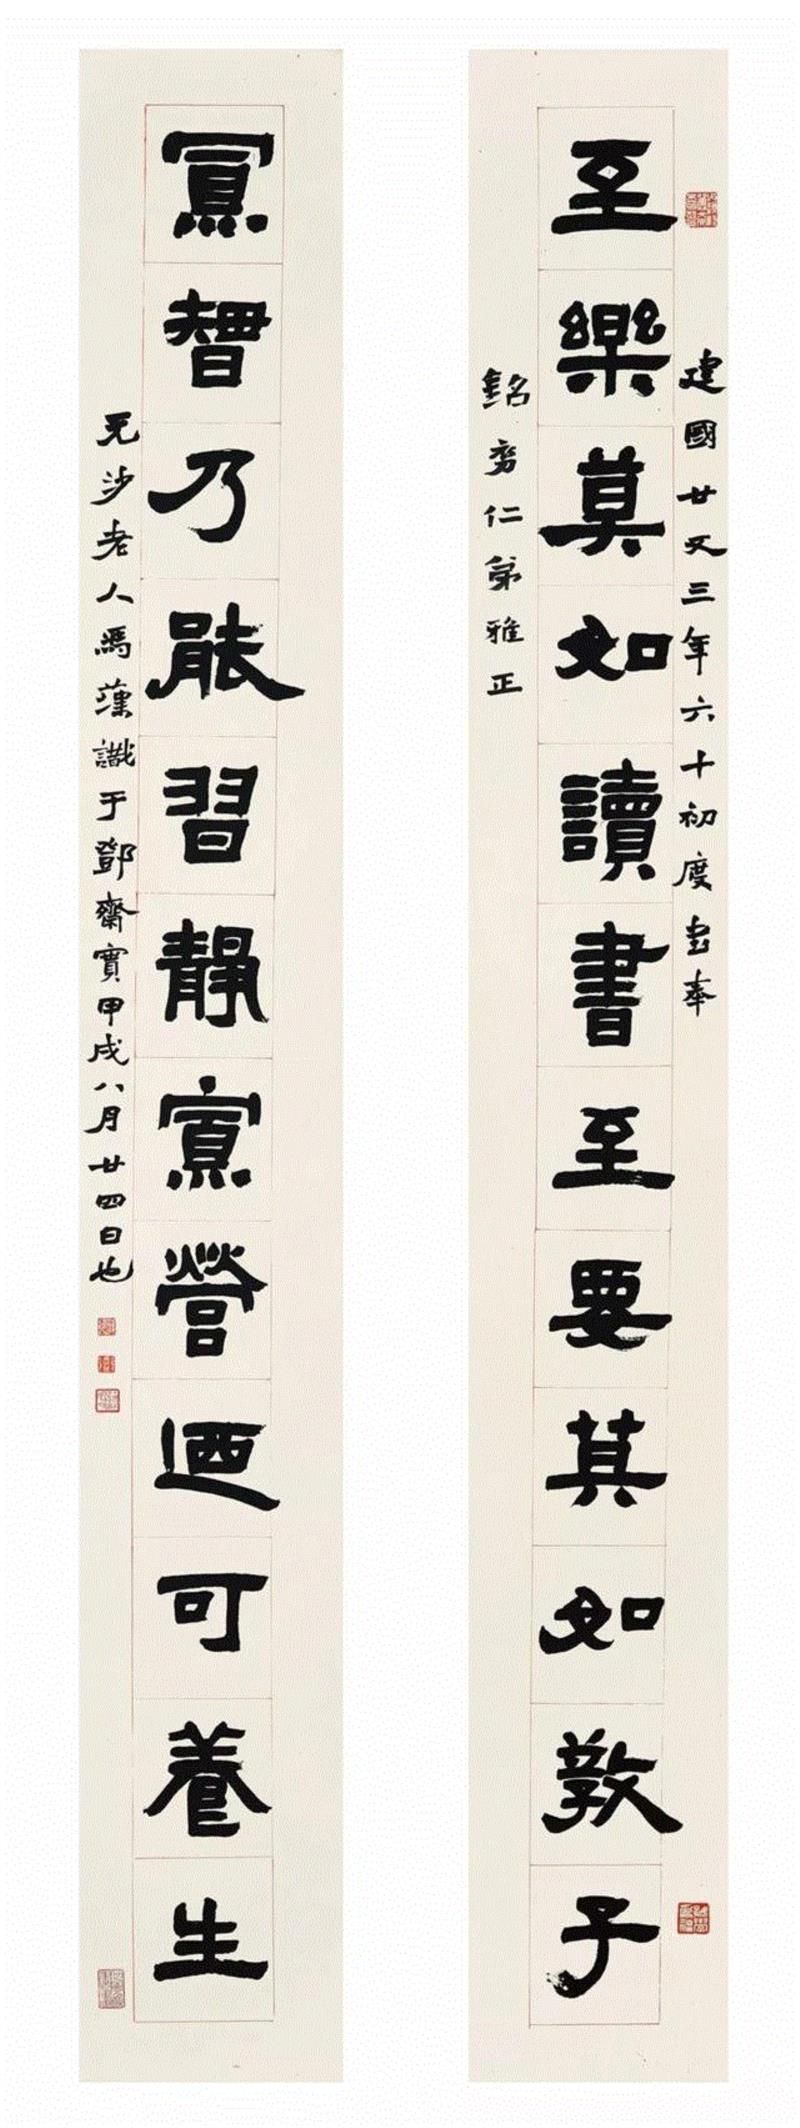 建國廿又三年六十初度書奉
至樂莫如讀書至要其如敎子
銘仁弟雅正
寡智乃能習靜寡營迺可養生
无沙老人馮漢識于鄧齋實甲戌八月廿四日也